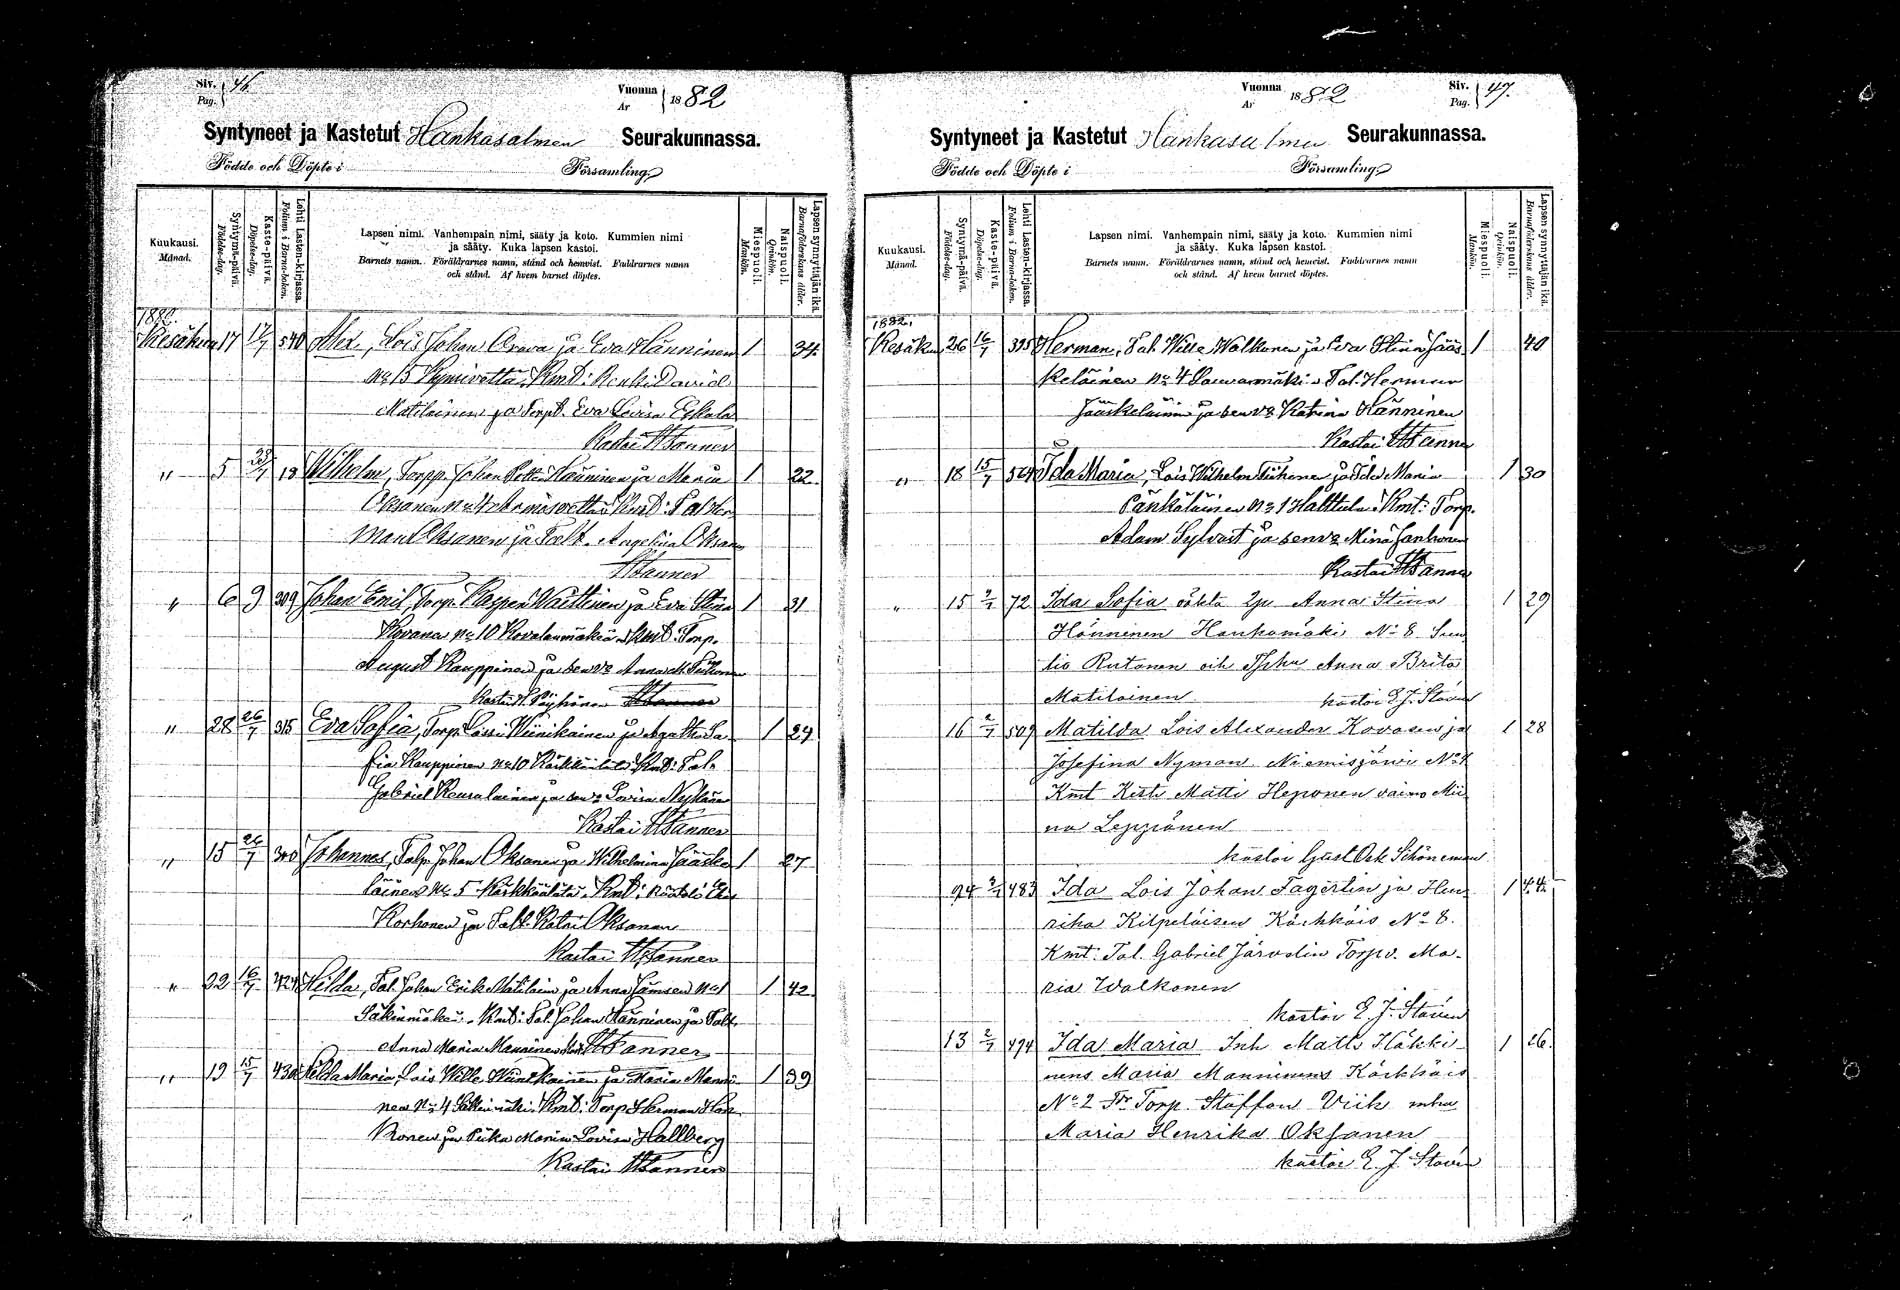 Siv. Pag. 46.
Vuonna År 1882
Syntyneet ja Kastetut Hankasalmen Seurakunnassa.
Födde och Döpte i Församling
Kuukausi. Månad.
Syntymä-päivä. Födelse-dag.
Kaste-päivä. Döpelse-dag.
Lehti Lasten-kirjassa. Folium i Barna-boken.
Lapsen nimi. Vanhempain nimi, sääty ja koto. Kummien nimi
ja sääty. Kuka lapsen kastoi.
Barnets namn. Föräldrarnes namn, stånd och hemvist. Faddrarnes namn
och stånd. Af hvem barnet döptes.
Miespuoli. Mankön.
Naispuoli. Qvinkön.
Lapsen synnyttäjän ikä. Barnaföderskans ålder.
1882.
Kesäkuu 17 17/7 540 Alex, Lois Johan Orava ja Eva Hänninen 1 34.
No 15 Kynsivettä. Kmt: Renki David
Matilainen ja Torpt. Eva Lovisa Eskola
Kastoi Wanner
" 5 23/7 13 Wilhelm, Torpp. Johan Petter Hänninen ja Maria 1 22
Oksanen No 4 Kmt: Tal Her-
man Oksanen ja Talt. Angelica Oksanen
Wanner
" 6 9 309 Johan Emil, Torp. Kasper Waittinen ja Eva Stina 1 31
Kovanen No 10 Kovalanmäkiä Kmt: Torp.
August Kauppinen ja sen vo Anna M.
Kastoi Pöyhönen Wanner
" 28 26/7 315 Eva Sofia, Torp. Lassi Wiinikainen ja Agatha So- 1 24
fia Kauppinen No 10 Kmt: Tal.
Gabriel Keuralainen ja sen vo Lovisa Nykänen
Kastoi Wanner
" 15 26/7 300 Johannes, Talp. Johan Oksanen ja Wilhelmina Jääske- 1 27
läinen No 5 Kmt:
Korhonen ja Talt. Katri Oksanen
Kastoi Wanner
" 22 16/7 424 Hilda, Tal. Johan Erik Matilainen ja Anna Jämsen No 1 1 42
Säkinmäkeä. Kmt: Tal. Johan Hänninen ja Talt.
Anna Maria Manninen Wanner
" 19 15/7 430 Hilda Maria, Lois Wille Wiinikainen ja Maria Manni- 1 39
nen No 4 Säkinmäki. Kmt: Torp. Herman Hon-
konen ja Piika Maria Lovisa Hallberg
Kastoi Wanner
Vuonna År 1882
Siv. Pag. 47.
Syntyneet ja Kastetut Hankasalmen Seurakunnassa.
Födde och Döpte i Församling
Kuukausi. Månad.
Syntymä-päivä. Födelse-dag.
Kaste-päivä. Döpelse-dag.
Lehti Lasten-kirjassa. Folium i Barna-boken.
Lapsen nimi. Vanhempain nimi, sääty ja koto. Kummien nimi
ja sääty. Kuka lapsen kastoi.
Barnets namn. Föräldrarnes namn, stånd och hemvist. Faddrarnes namn
och stånd. Af hvem barnet döptes.
Miespuoli. Mankön.
Naispuoli. Qvinkön.
Lapsen synnyttäjän ikä. Barnaföderskans ålder.
1882.
Kesäkuu 26 16/7 395 Herman, Tal. Wille Walkonen ja Eva Stina Jääs- 1 40
keläinen No 4 Sauvamäki. Tal. Herman
Jääskeläinen ja sen vo Katrina Hänninen
Kastoi Wanner
" 18 15/7 564 Ida Maria, Lois Wilhelm Tiihonen ja Ida Maria 1 30
Pänkäläinen No 1 Halttula. Kmt: Torp.
Adam Sylvast ja sen vo Mina Janhonen
Kastoi Wanner
" 15 2/7 72 Ida Sofia Anna Stina 1 29
Hänninen Hankamäki No 8
Rutanen Anna Brita
Matilainen kastoi E. J. Stovén
16 2/7 509 Matilda Lois Alexander Kovasen ja 1 28
Josefina Nyman Niemisjärvi No 1
Kmt Kisti Matti Heponen vaimo Mii-
na Leppänen
kastoi Gust Osk Schöneman
24 3/7 483 Ida Lois Johan Fagerlin ja Hen- 1 44
rika Kilpeläisen Kärkkäis No 8.
Kmt: Tal. Gabriel Järvelin Torpv. Ma-
ria Walkonen
kastoi E. J. Stovén
13 2/7 474 Ida Maria Inh Matts Häkki- 1 26.
nens Maria Manninens Kärkkäis
No 2 Fr Torp. Staffan Viik mhu
Maria Henrika Oksanen
kastoi E. J. Stovén